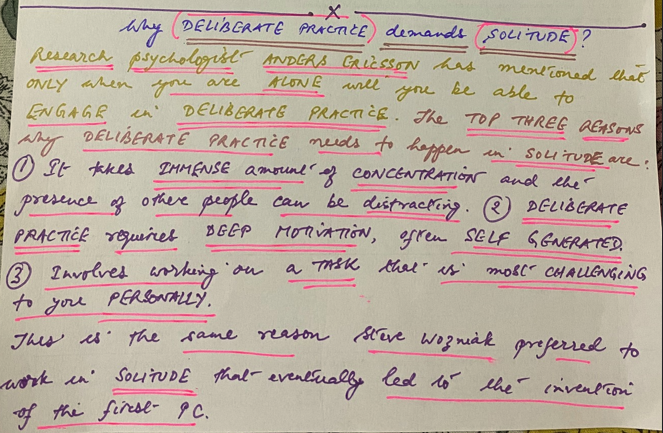 X
Why (DELIBERATE PRACTICE) demands (SOLITUDE)?
Research psychologist ANDERS ERICSSON has mentioned that
ONLY when you are ALONE will you be able to
ENGAGE in DELIBERATE PRACTICE. The TOP THREE REASONS
why DELIBERATE PRACTICE needs to happen in SOLITUDE are:
① It takes IMMENSE amount of CONCENTRATION and the
presence of other people can be distracting. ② DELIBERATE
PRACTICE requires DEEP MOTIVATION, often SELF GENERATED.
③ Involves working on a TASK that is most CHALLENGING
to you PERSONALLY.
This is the same reason Steve Wozniak preferred to
work in SOLITUDE that eventually led to the invention
of the first PC.